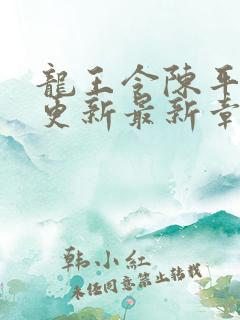 龍王令陳平
更新最新章
韩小紅
未经同意禁止转载